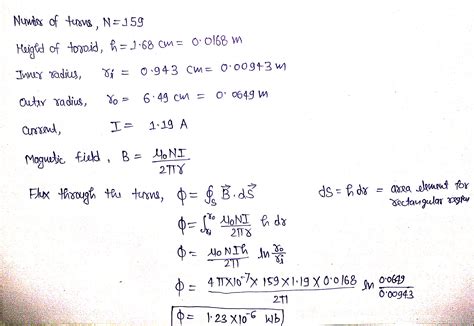 Number of turns, N=159
Height of toroid, h = 1.68 cm = 0.0168 m
Inner radius, ri = 0.943 cm = 0.00943 m
Outer radius, ro = 6.49 cm = 0.0649 m
Current, I = 1.19 A
Magnetic field, B = μ₀NI / 2πr
Flux through the turns, Φ = ∮s B⃗.ds⃗ ds = h dr = area element for rectangular region
Φ = ∫ri^ro μ₀NI / 2πr h dr
Φ = μ₀NIh / 2π ln ro/ri
Φ = 4π×10⁻⁷ × 159 × 1.19 × 0.0168 / 2π ln 0.0649 / 0.00943
Φ = 1.23 ×10⁻⁶ Wb